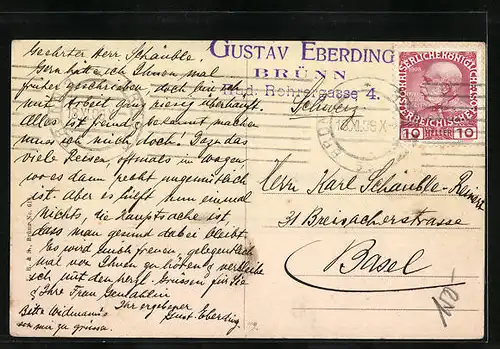 Geehrter Herr Schäuble.
Gern hätte ich Ihnen mal
früher geschrieben, doch bin ich
mit Arbeit ganz riesig überhäuft.
Alles ist fremd, bekannt machen
muss ich mich doch! Dazu das
viele Reisen, oftmals im Wagen,
wo es dann recht ungemütlich
ist. Aber es hilft nun einmal
nichts, die Hauptsache ist,
dass man gesund dabei bleibt.
Es wird mich freuen, gelegentlich
mal von Ihnen zu hören & verbleibe
ich mit den herzl. Grüssen für Sie
& Ihre Frau Gemahlin
Ihr ergebener
Gust. Eberding.
Bitte Widmanns
von mir zu grüssen.
GUSTAV EBERDING
BRÜNN
Rud. Rohrergasse 4.
Schweiz
KAISERLICHE KÖNIGLICHE
ÖSTERREICHISCHE POST
10 HELLER 10
Herrn Karl Schäuble-Reinert
31 Breisacherstrasse
Basel
100.-